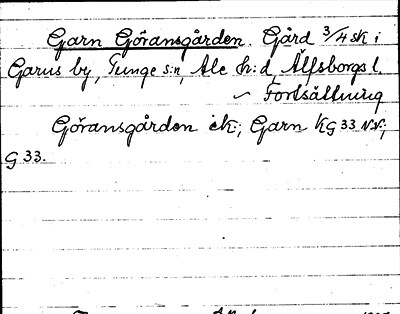 Garn Göransgården. Gård 3/4 sk i
Garns by, Tunge s:n, Ale h:d, Älfsborgs l.
~ Fortsättning
Göransgården ek:, Garn KG 33 NV;
G 33.